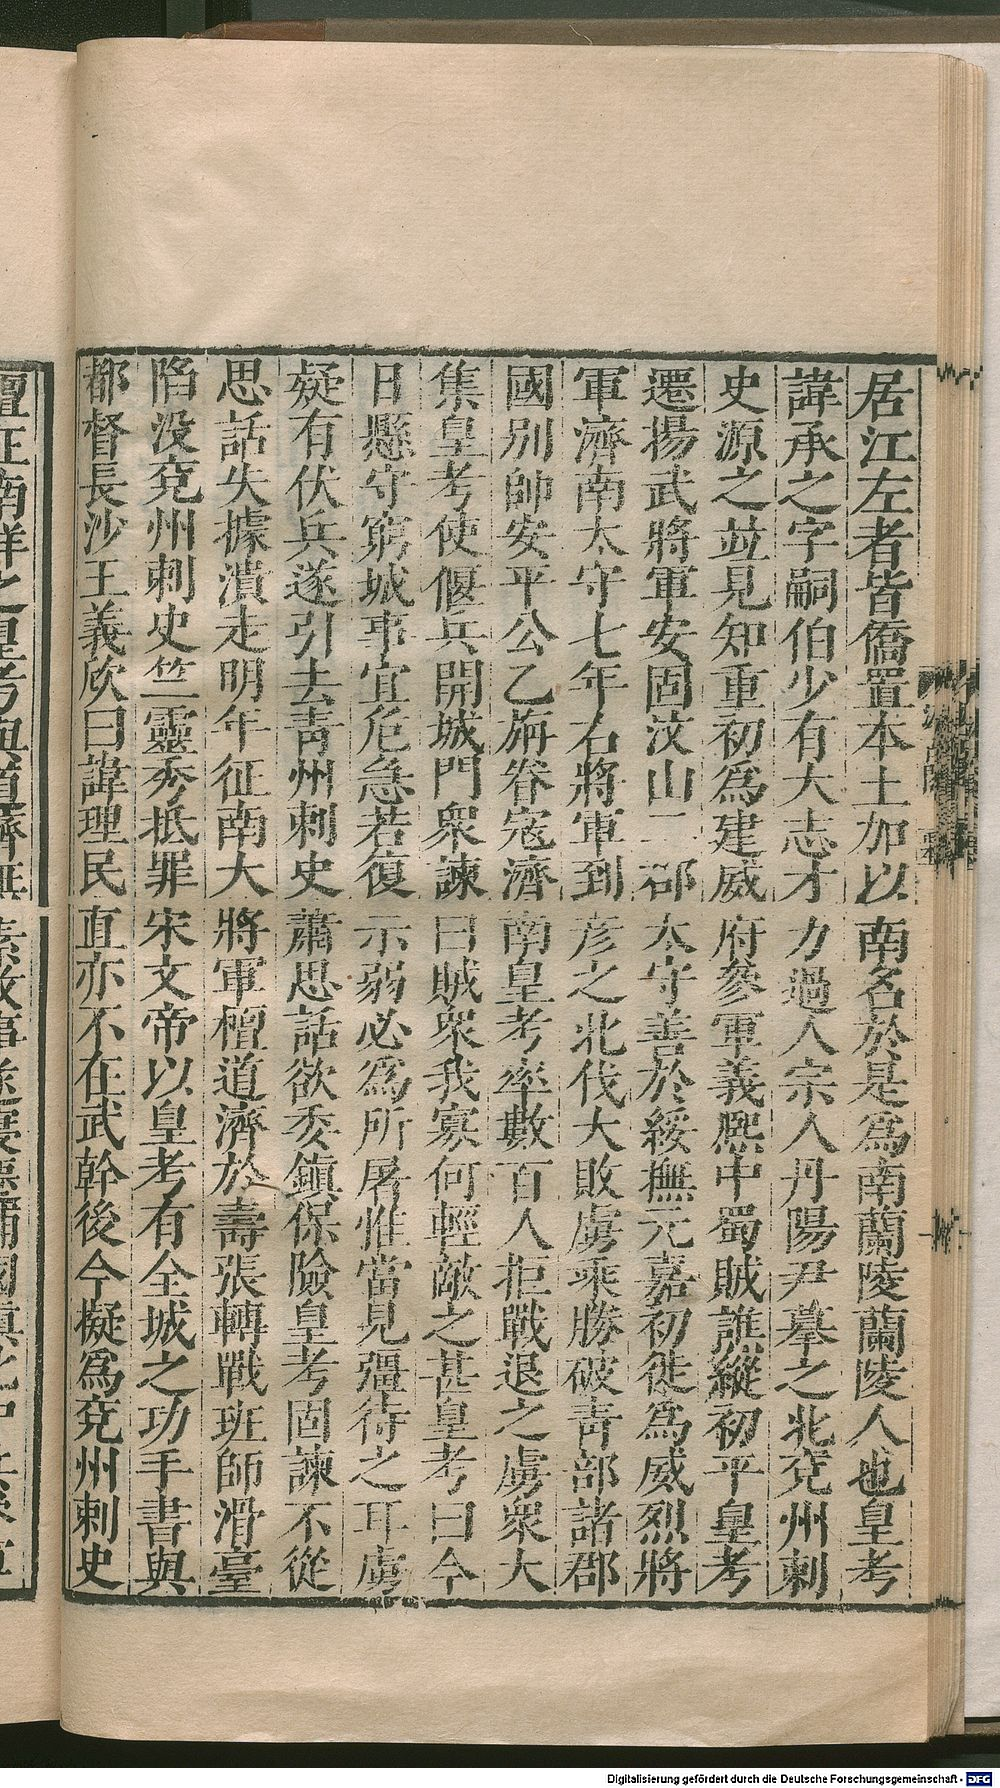 居江左者皆僑置本土加以南名於是爲南蘭陵蘭陵人也皇考
諱承之字嗣伯少有大志才力過人宗人丹陽尹摹之北兖州刺
史源之並見知重初爲建威府參軍義熙中蜀賊譙縱初平皇考
遷揚武將軍安固汶山二郡太守善於綏撫元嘉初徙爲威烈將
軍濟南太守七年右將軍到彥之北伐大敗虜乘勝破青部諸郡
國別帥安平公乙旃眷寇濟南皇考率數百人拒戰退之虜衆大
集皇考使偃兵開城門衆諫曰賊衆我寡何輕敵之甚皇考曰今
日懸守窮城事宜危急若復示弱必爲所屠惟當見彊待之耳虜
疑有伏兵遂引去青州刺史蕭思話欲委鎮保險皇考固諫不從
思話失據潰走明年征南大將軍檀道濟於壽張轉戰班師滑臺
陷没兖州刺史竺靈秀抵罪宋文帝以皇考有全城之功手書與
都督長沙王義欣曰諱理民直亦不在武幹後今擬爲兖州刺史
Digitalisierung gefördert durch die Deutsche Forschungsgemeinschaft - DFG